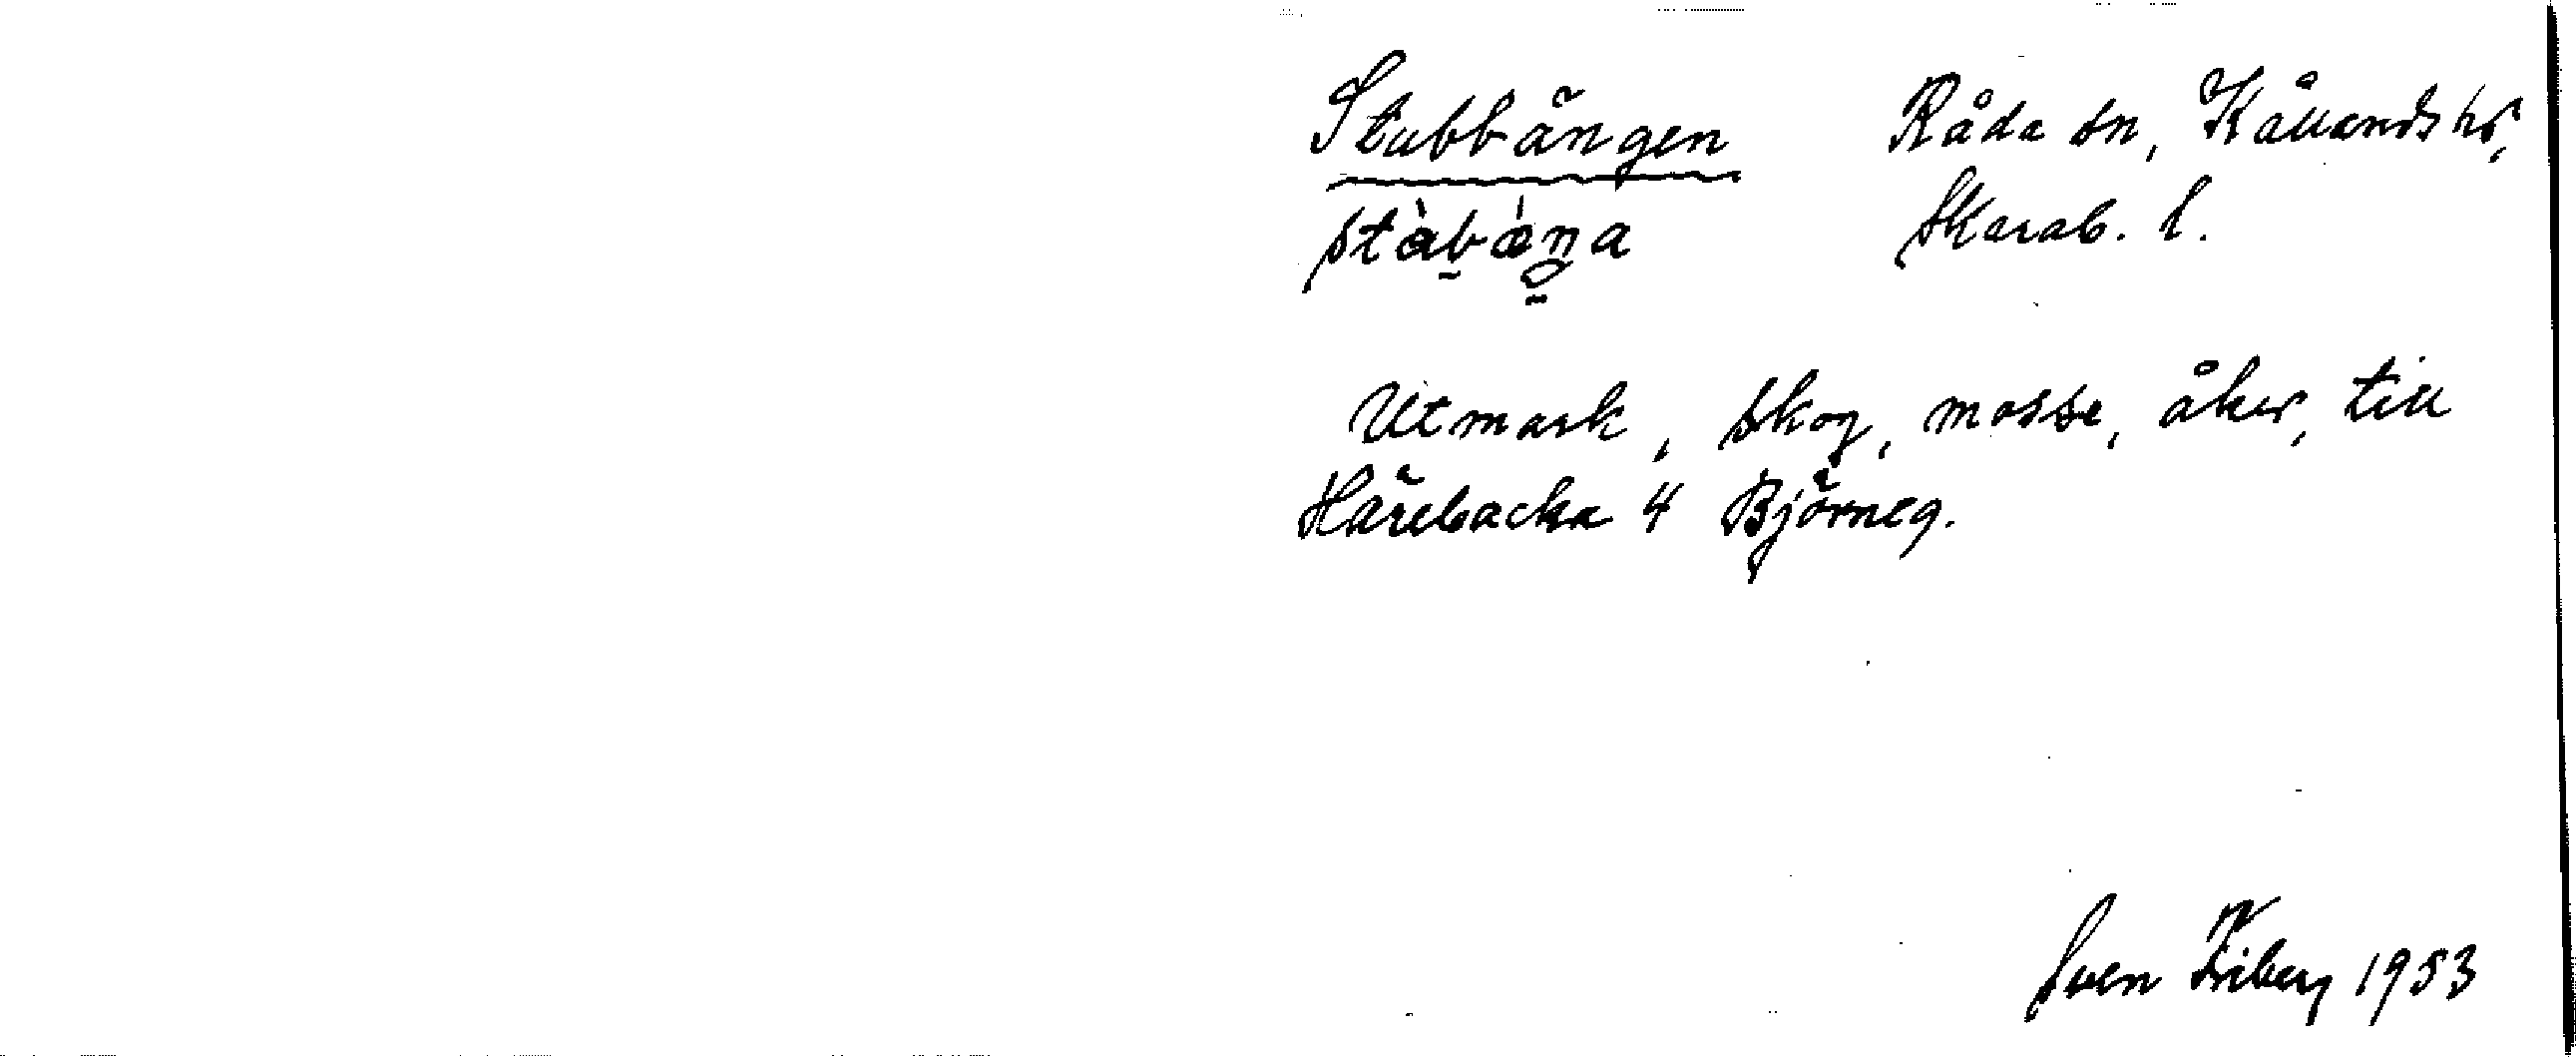 Stubbängen Råda sn, Kållands hd,
Skarab. l.
Utmark, skog, mosse, åker, till
Härebacka 4 Björneg.
Sven Friberg 1953